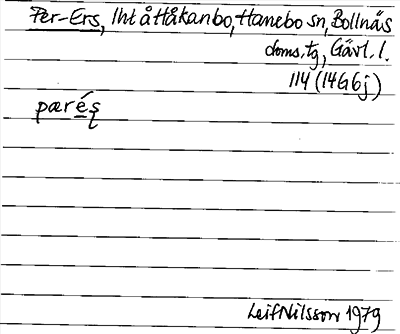 Per-Ers, lht å Håkanbo, Hanebo sn, Bollnäs
doms. tg, Gävl. l.
114 (14G6j)
pærés
Leif Nilsson 1979